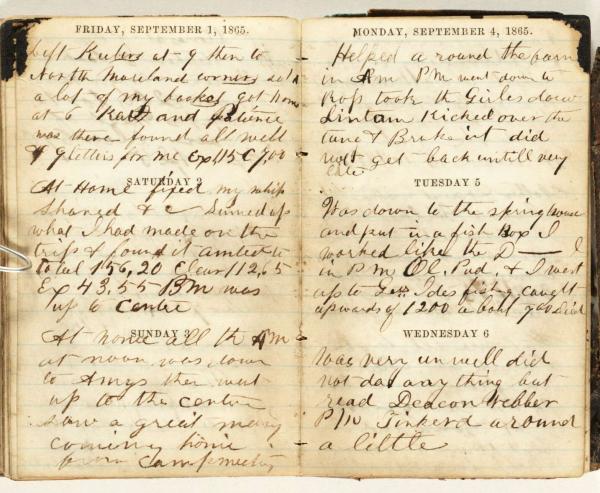 FRIDAY, SEPTEMBER 1, 1865.
left at 9 then to
North Moreland corners
a lot of my got home
at 6 and
was there found all well
& 9 letters for me Ex 115 C 900
SATURDAY 2
At Home fixed my whip
Shaved & c Sumed up
what I had made on the
trip & found it amted to
total 156,20 Clear 112,65
Ex 43,55 P M was
up to centre
SUNDAY 3
At home all the A M
at noon was down
to then went
up to the centre
saw a great many
coming home
from Campmeeting
MONDAY, SEPTEMBER 4, 1865.
Helped a round the barn
in A m P M went down to
took the Girls down
Kicked over the
& Broke it did
not get back untill very
late
TUESDAY 5
Was down to the spring house
and put in a fish Box I
worked like the D— I
in P M Ol. Pud. & I went
up to fishing caught
upwards of 1200
WEDNESDAY 6
Was very un well did
not do anything but
read Deacon Webber
P M Tinkerd around
a little